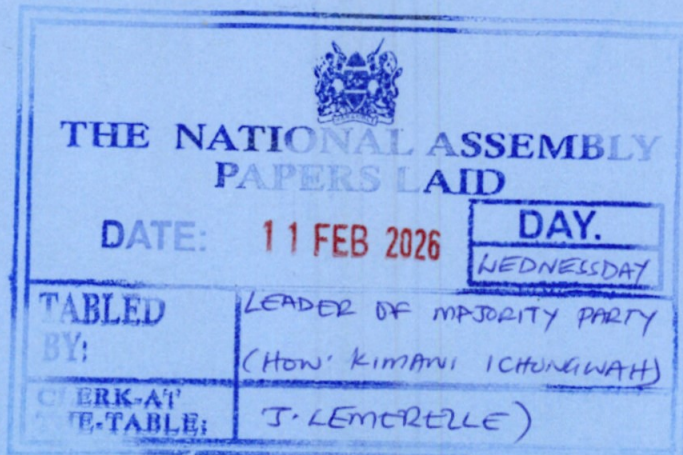 THE NATIONAL ASSEMBLY
PAPERS LAID
DATE: 11 FEB 2026
DAY.
WEDNESSDAY
TABLED BY:
LEADER OF MAJORITY PARTY
(HON' KIMANI ICHUNGWAH)
CLERK-AT
THE-TABLE:
J. LEMERELLE)